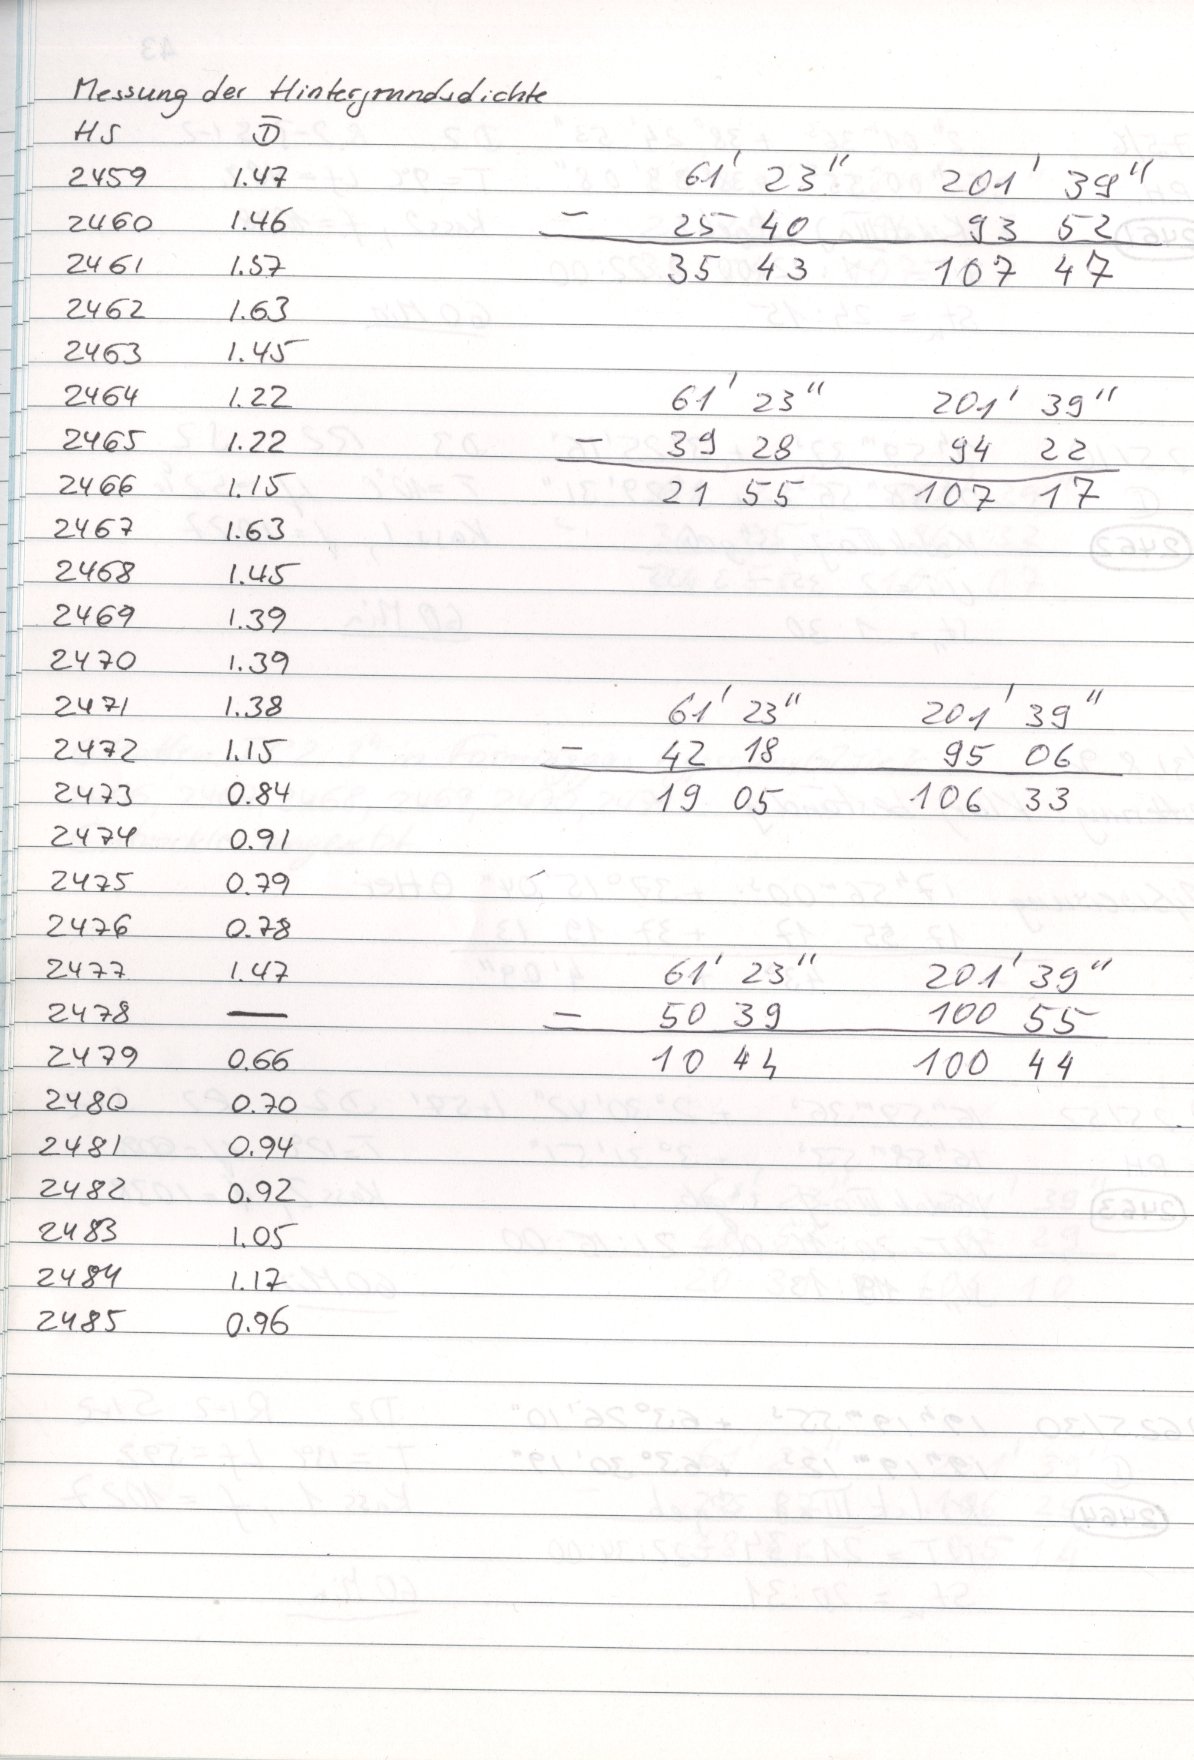 Messung der Hintergrundsdichte
HS D̅
2459 1.47 61' 23" 201' 39"
2460 1.46 − 25 40 93 52
2461 1.57 35 43 107 47
2462 1.63
2463 1.45
2464 1.22 61' 23" 201' 39"
2465 1.22 − 39 28 94 22
2466 1.15 21 55 107 17
2467 1.63
2468 1.45
2469 1.39
2470 1.39
2471 1.38 61' 23" 201' 39"
2472 1.15 − 42 18 95 06
2473 0.84 19 05 106 33
2474 0.91
2475 0.79
2476 0.78
2477 1.47 61' 23" 201' 39"
2478 — − 50 39 100 55
2479 0.66 10 44 100 44
2480 0.70
2481 0.94
2482 0.92
2483 1.05
2484 1.17
2485 0.96